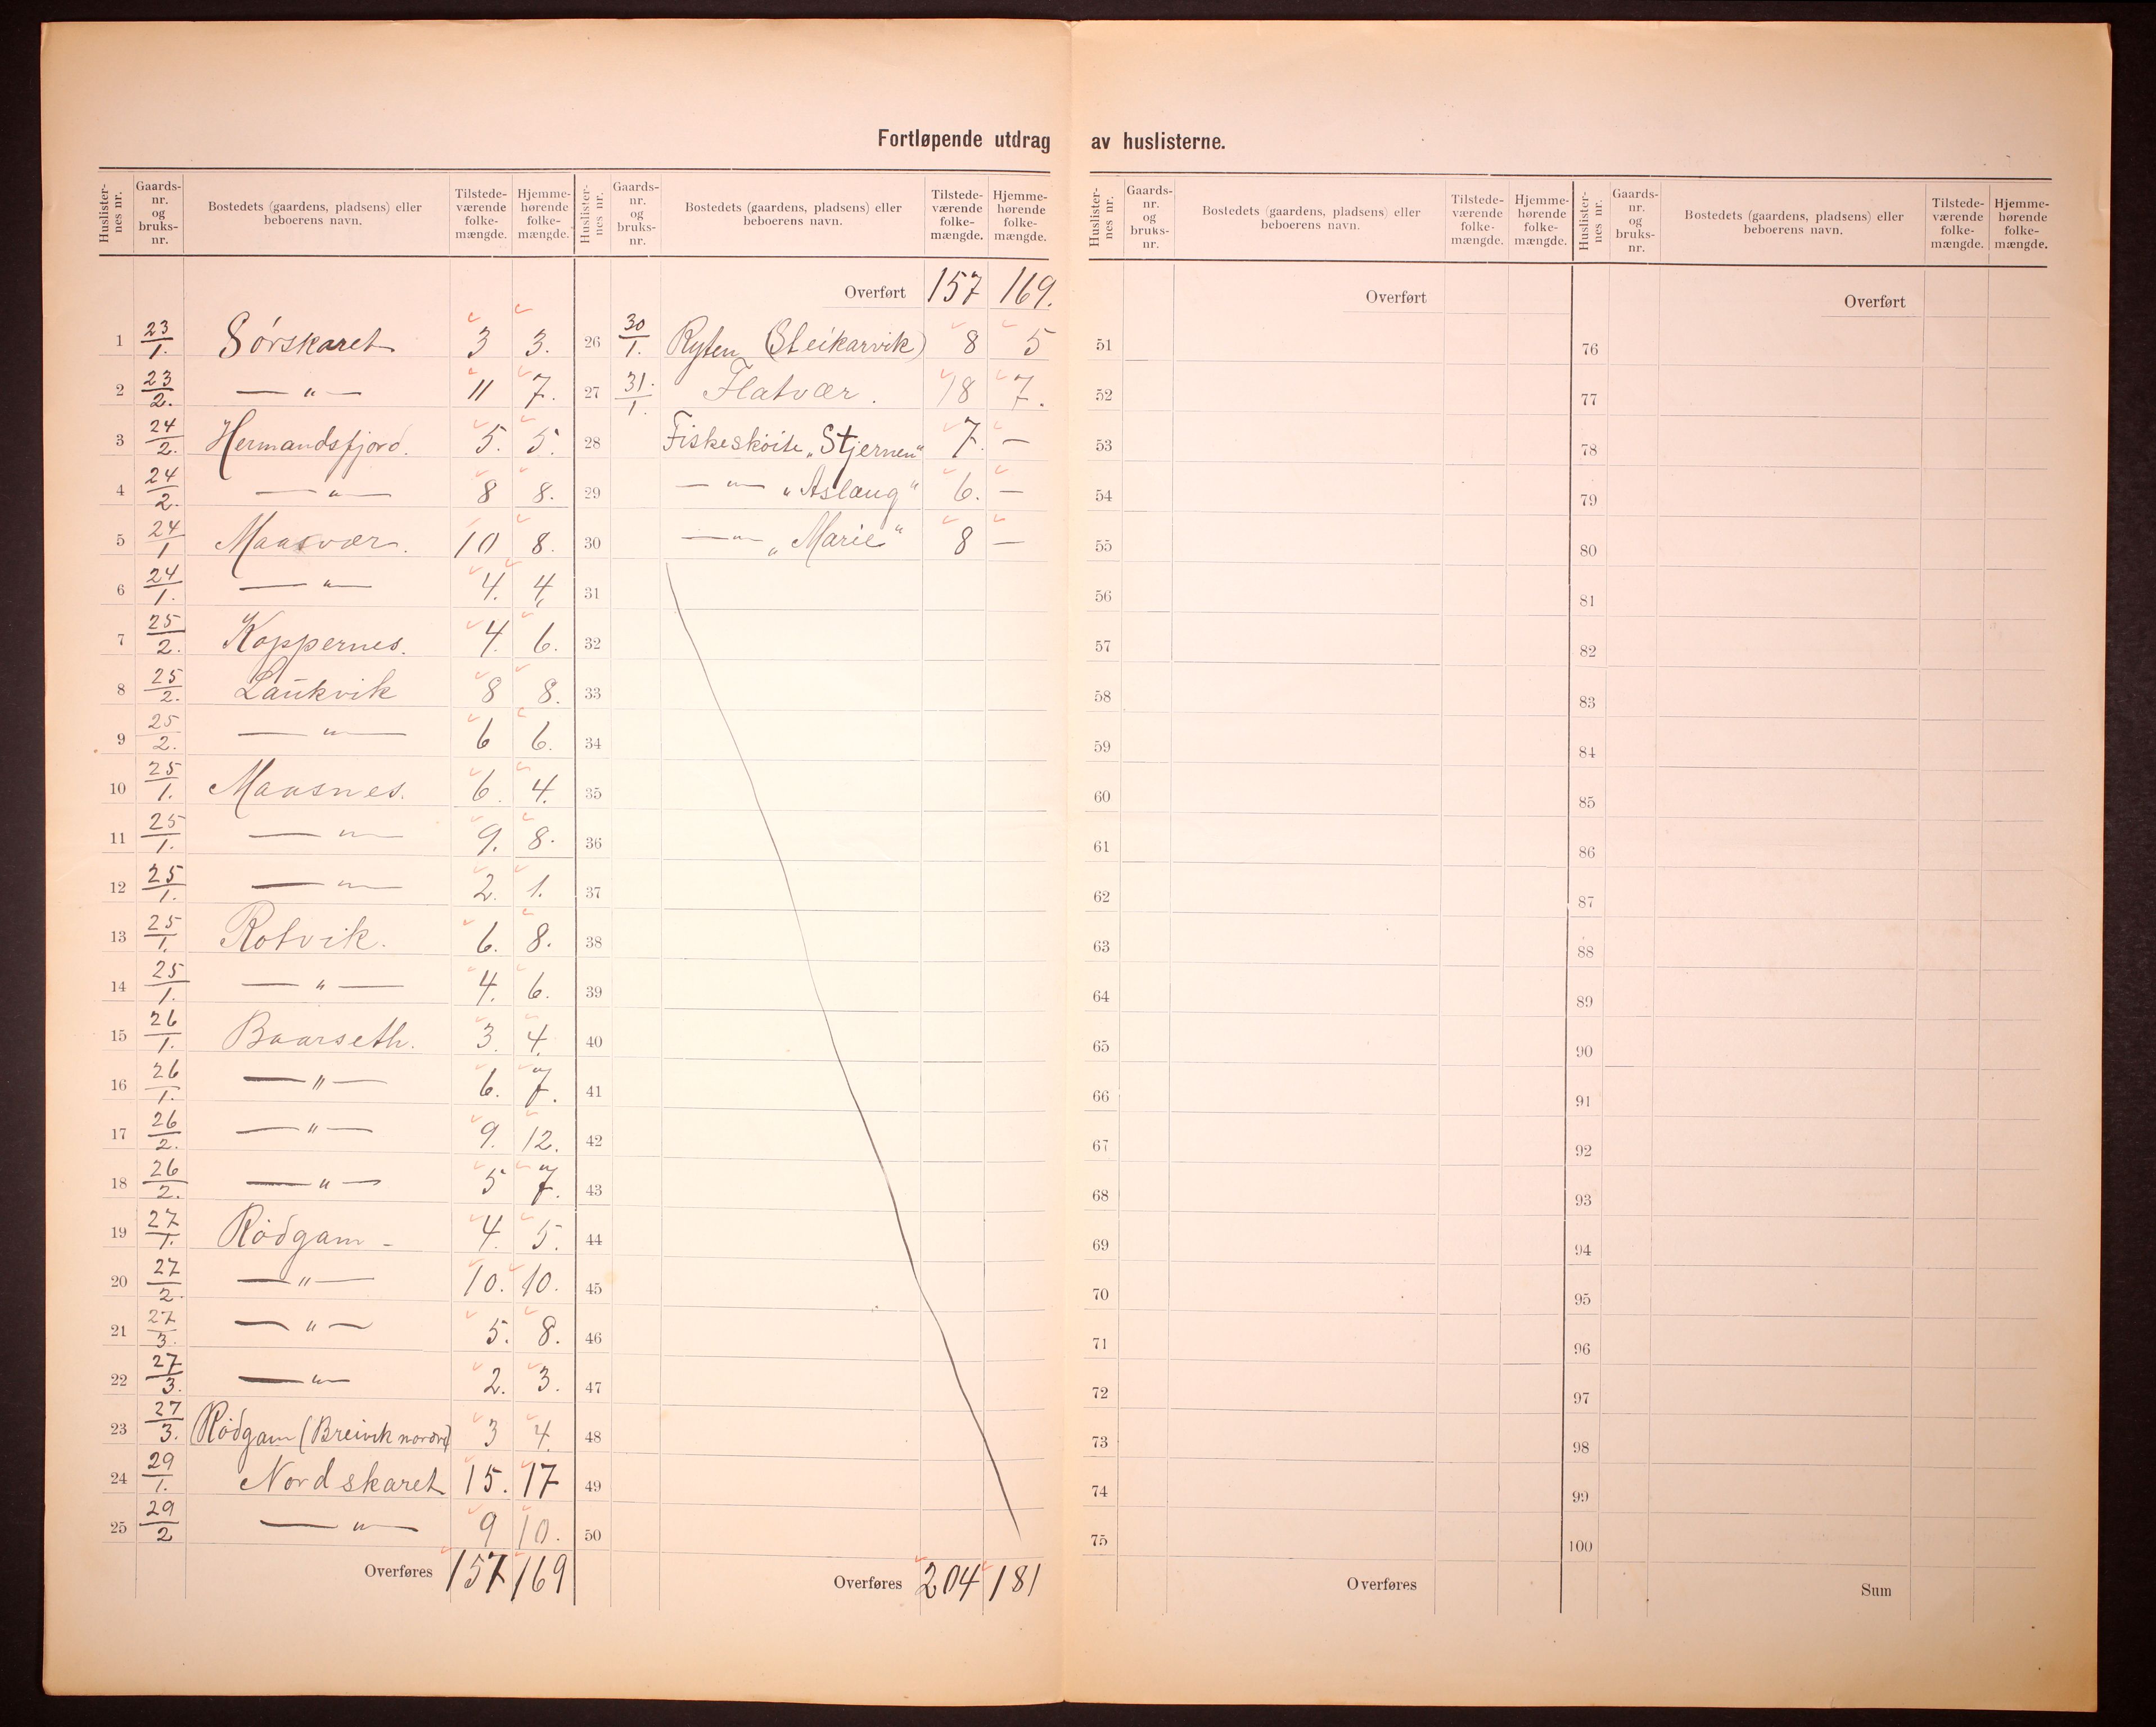 Fortløpende utdrag av huslisterne.
Huslister-nes nr. | Gaards-nr. og bruks-nr. | Bostedets (gaardens, pladsens) eller beboerens navn. | Tilstede-værende folke-mængde. | Hjemme-hørende folke-mængde.
1 23/1. Sørskaret 3 3.
2 23/2. — " — 11 7.
3 24/2. Hermandsfjord. 5. 5.
4 24/2. — " — 8 8.
5 24/1 Maasvær. 10 8.
6 24/1. — " — 4. 4.
7 25/2. Koppernes. 4. 6.
8 25/2. Laukvik 8 8.
9 25/2. — " — 6 6.
10 25/1. Maasnes. 6. 4.
11 25/1. — " — 9. 8.
12 25/1. — " — 2. 1.
13 25/1. Rotvik. 6. 8.
14 25/1. — " — 4. 6.
15 26/1. Baarseth. 3. 4.
16 26/1. — " — 6. 7.
17 26/2. — " — 9. 12.
18 26/2. — " — 5 7.
19 27/1. Rödgam - 4. 5.
20 27/2. — " — 10. 10.
21 27/3. — " — 5. 8.
22 27/3. — " — 2. 3.
23 27/3. Rödgam (Breivik nordre) 3 4.
24 29/1. Nordskaret 15. 17
25 29/2 — " — 9 10.
Overføres 157 169
Huslister-nes nr. | Gaards-nr. og bruks-nr. | Bostedets (gaardens, pladsens) eller beboerens navn. | Tilstede-værende folke-mængde. | Hjemme-hørende folke-mængde.
Overført 157 169.
26 30/1. Ryten (Steikarvik) 8 5
27 31./1. Flatvær. 18 7.
28 Fiskeskøite „Stjernen" 7. —
29 — " — „Aslaug" 6. —
30 — " — „Marie" 8 —
31
32
33
34
35
36
37
38
39
40
41
42
43
44
45
46
47
48
49
50
Overføres 204 181
Huslister-nes nr. | Gaards-nr. og bruks-nr. | Bostedets (gaardens, pladsens) eller beboerens navn. | Tilstede-værende folke-mængde. | Hjemme-hørende folke-mængde.
Overført
51
52
53
54
55
56
57
58
59
60
61
62
63
64
65
66
67
68
69
70
71
72
73
74
75
Overføres
Huslister-nes nr. | Gaards-nr. og bruks-nr. | Bostedets (gaardens, pladsens) eller beboerens navn. | Tilstede-værende folke-mængde. | Hjemme-hørende folke-mængde.
Overført
76
77
78
79
80
81
82
83
84
85
86
87
88
89
90
91
92
93
94
95
96
97
98
99
100
Sum